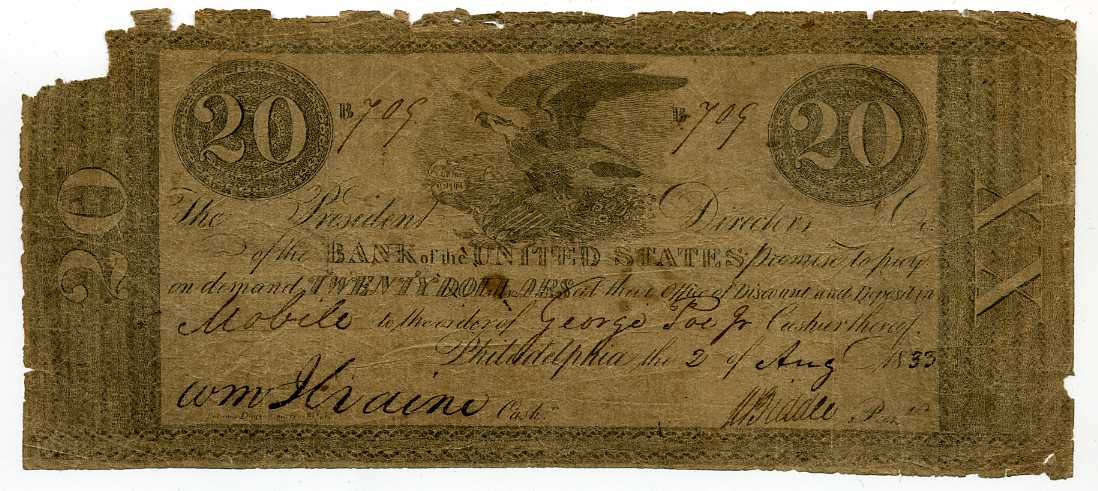 20 B 709 B 709 20
The President Directors & Co.
of the BANK of the UNITED STATES promise to pay
on demand TWENTY DOLLARS at their Office of Discount and Deposit in
Mobile to the order of George Poe Jr Cashier thereof.
Philadelphia the 2 of Aug 1833
Cash.r N Biddle Pres.t
20
XX